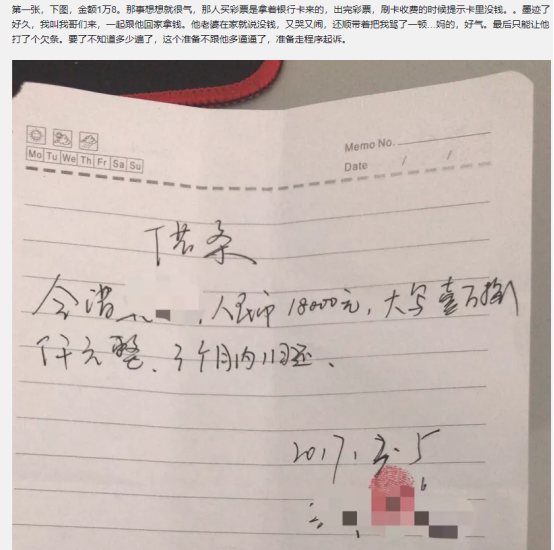 第一张，下图，金额1万8。那事想想就很气，那人买彩票是拿着银行卡来的，出完彩票，刷卡收费的时候提示卡里没钱。。墨迹了
好久，我叫我哥们来，一起跟他回家拿钱。他老婆在家就说没钱，又哭又闹，还顺带着把我骂了一顿...妈的，好气。最后只能让他
打了个欠条。要了不知道多少遍了，这个准备不跟他多逼逼了，准备走程序起诉。
Memo No.
Mo Tu We Th Fr Sa Su
Date / /
借条
今借 ，人民币18000元，大写壹万捌
仟元整、3个月内归还、
2017.3.5